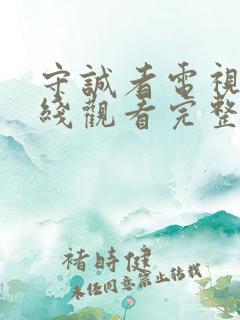 守誠者電視
綫觀看完整
褚時健
未任同意禁止转载